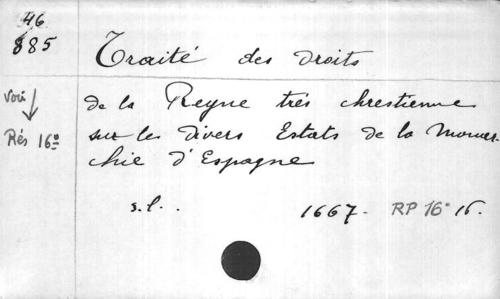 46
885
Traité des droits
de la Reyne très chrestienne
sur les divers Estats de la Monar-
chie d'Espagne
Voir
Rés 16º
s.l.. 1667. RP 16º 16.